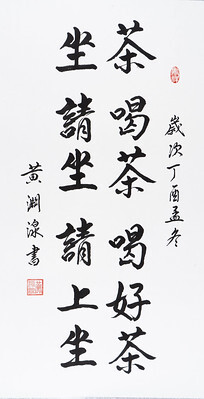 歲次丁酉孟冬
茶喝茶喝好茶
坐請坐請上坐
黃淵湶書